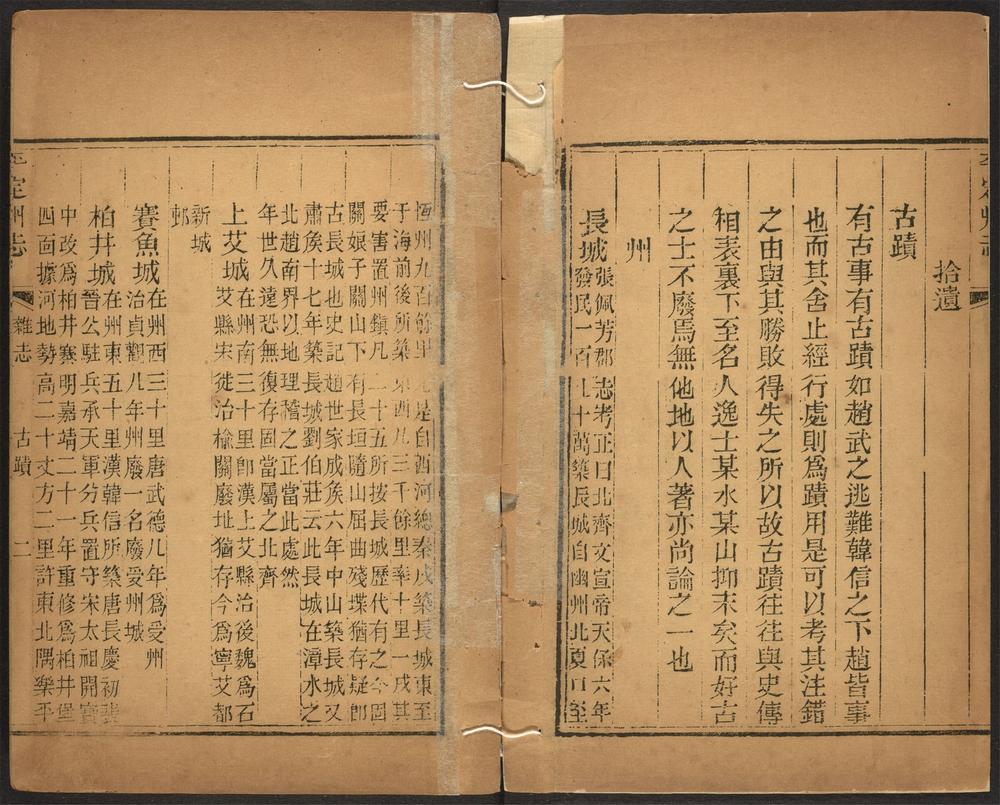 拾遺
古蹟
有古事有古蹟如趙武之逃難韓信之下趙皆事
也而其舍止經行處則爲蹟用是可以考其注錯
之由與其勝敗得失之所以故古蹟往往與史傳
相表裏下至名人逸士某水某山抑末矣而好古
之士不廢焉無他地以人著亦尚論之一也
州
長城張佩芳郡志考正曰北齊文宣帝天保六年
發民一百八十萬築長城自幽州北夏口至
恒州九百餘里先是自西河總秦戍築長城東至
于海前後所築東西凡三千餘里率十里一戍其
要害置州鎮凡二十五所按長城歷代有之今固
關娘子關山下有長垣隨山屈曲殘堞猶存疑卽
古長城也史記趙世家成侯六年中山築長城又
肅侯十七年築長城劉伯莊云此長城在漳水之
北趙南界以地理稽之正當此處然
年世久遠恐無復存固當屬之北齊
上艾城在州南三十里卽漢上艾縣治後魏爲石
艾縣宋徙治榆關廢址猶存今爲寧艾都
新城
邨
賽魚城在州西三十里唐武德八年爲受州
治貞觀八年州廢一名廢愛州城
柏井城在州東五十里漢韓信所築唐長慶初裴
晉公駐兵承天軍分兵置守宋太祖開寶
中改爲柏井寨明嘉靖二十一年重修爲柏井堡
四面據河地勢高二十丈方二里許東北隅樂平
定州志
雜志
古蹟
二